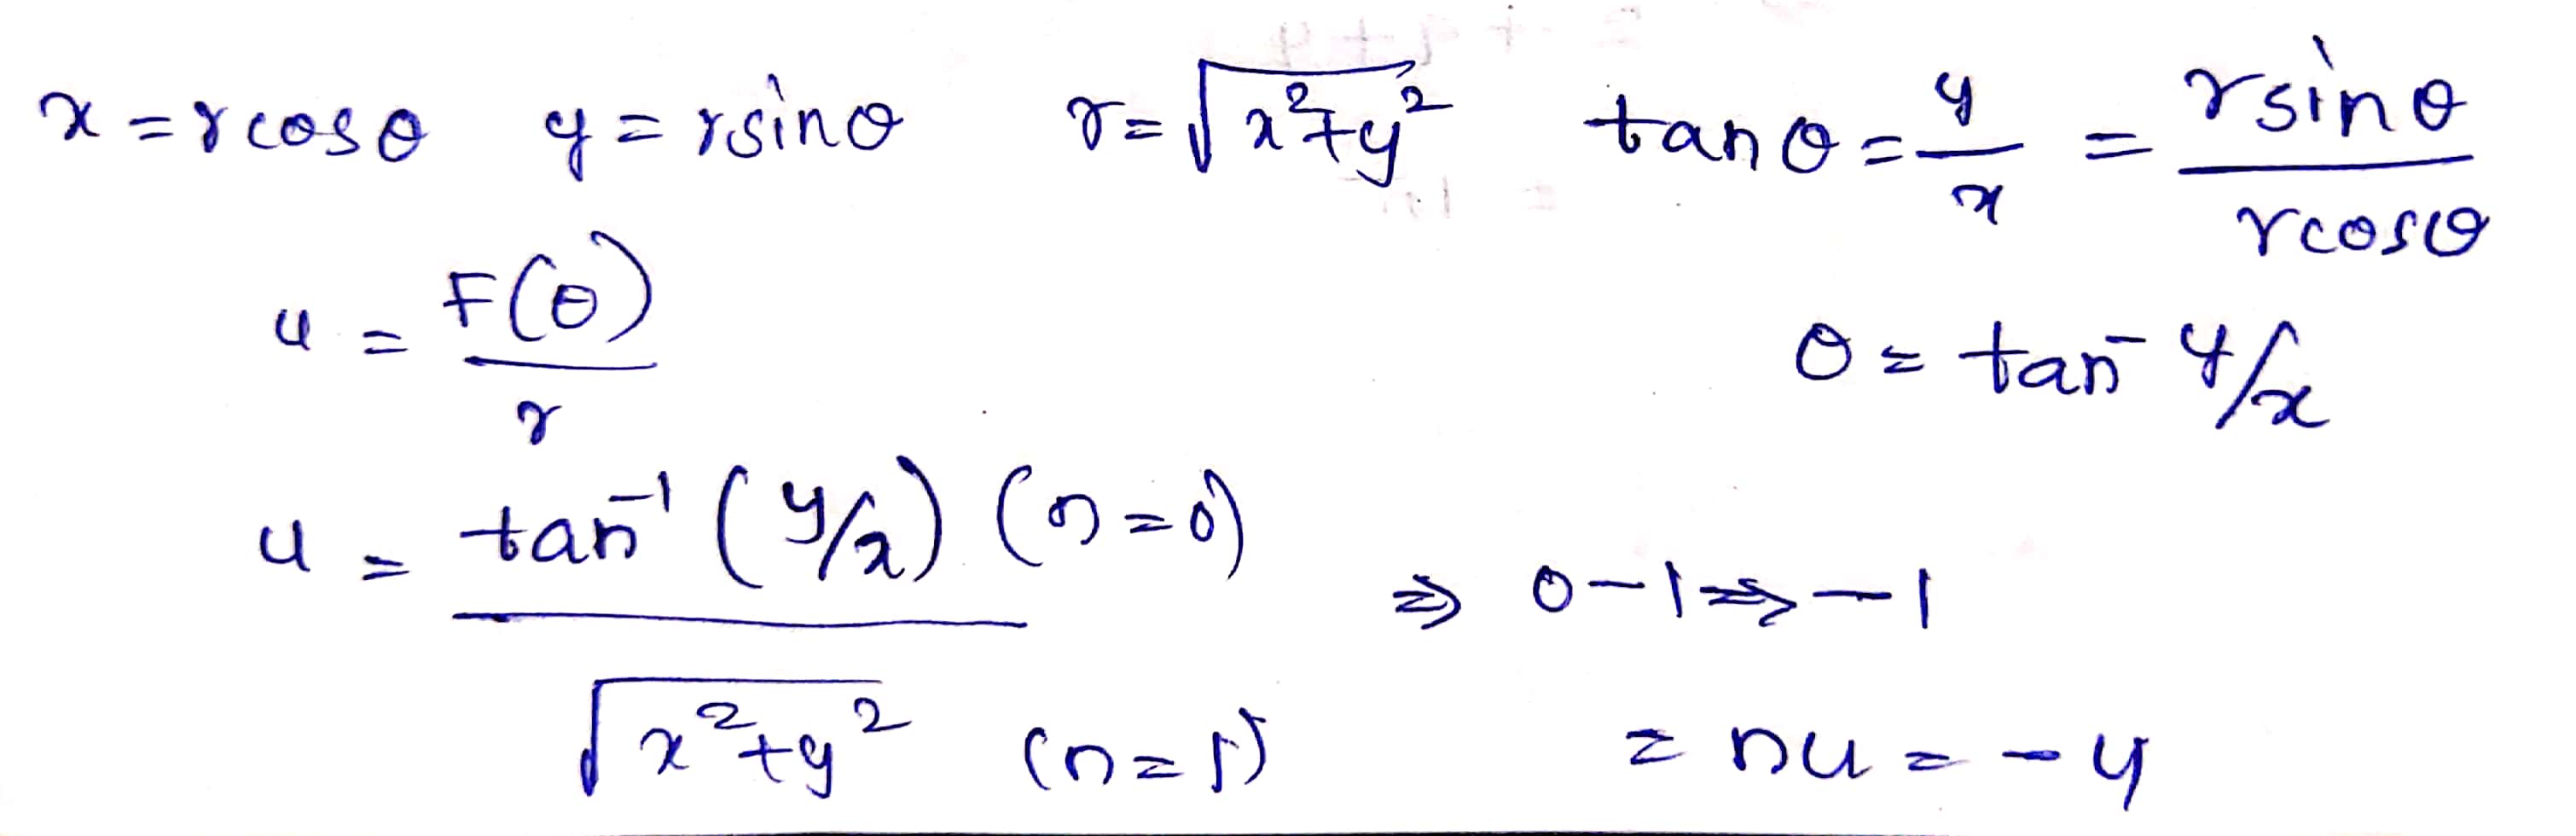 x = rcosθ y = rsinθ r = √x²+y² tanθ = y/x = rsinθ/rcosθ
u = F(θ)/r
θ = tan⁻ y/x
u = tan⁻¹(y/x) (n=0) / √x²+y² (n=1) ⇒ 0-1 ⇒ -1
= nu = -u